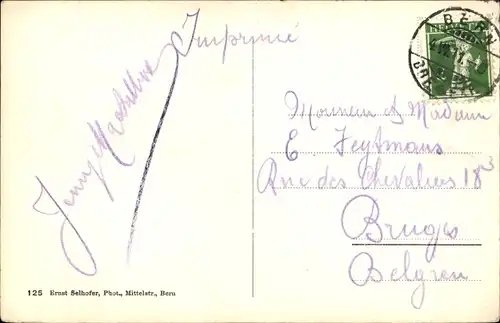 Imprimé
BERN
HELVETIA
Jenny
Monsieur et Madame
E Feytmans
Rue des Chevaliers 18
Bruges
Belgien
125 Ernst Selhofer, Phot., Mittelstr., Bern